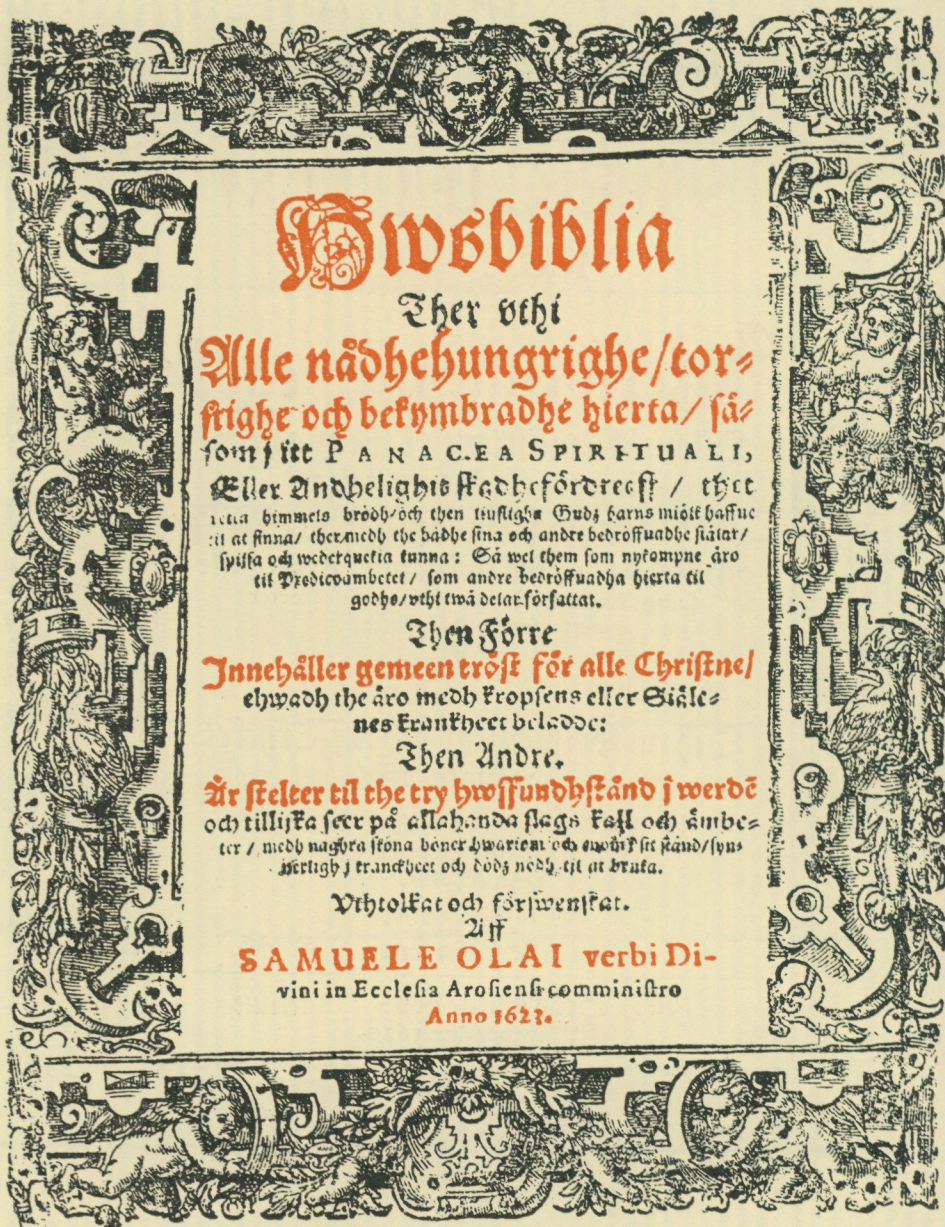 Hwsbiblia
Ther vthi
Alle nådhehungrighe/tor-
stighe och bekymbradhe hierta/ så-
som j itt PANACEA SPIRITUALI,
Eller Andhelighit skadhefördreff / thet
retta himmels brödh/och then liufligha Gudz barns miölk haffue
til at finna/ ther medh the bådhe sina och andre bedröffuadhe siälar/
spissa och wederquekia kunna: Så wel them som nykompne äro
til Predicoämbetet/ som andre bedröffuadha hierta til
godho/vthi twå delar författat.
Then Förre
Innehåller gemeen tröst för alle Christne/
ehwadh the äro medh kropsens eller Siäle-
nes kranckheet beladde:
Then Andre.
Är stelter til the try hwffundhstånd j werdē
och tillijka seer på allahanda slags kall och ämbe-
ter / medh naghra sköna böner hwariom och enom j sit stånd/syn-
nerligh j kranckheet och dödz nödh til at bruka.
Vthtolkat och förswenskat.
Aff
SAMUELE OLAI verbi Di-
vini in Ecclesia Arosiensi comministro
Anno 1623.